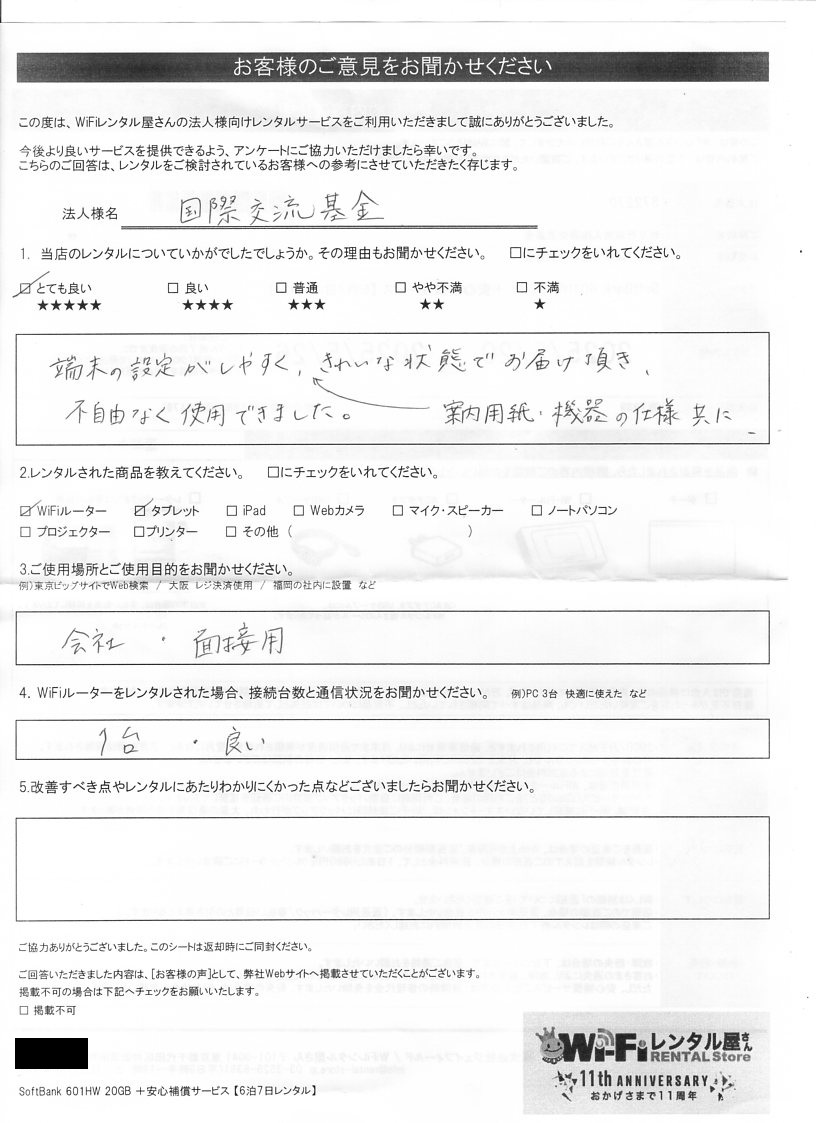 お客様のご意見をお聞かせください
この度は、WiFiレンタル屋さんの法人様向けレンタルサービスをご利用いただきまして誠にありがとうございました。
今後より良いサービスを提供できるよう、アンケートにご協力いただけましたら幸いです。
こちらのご回答は、レンタルをご検討されているお客様への参考にさせていただきたく存じます。
法人様名 国際交流基金
1. 当店のレンタルについていかがでしたでしょうか。その理由もお聞かせください。 □にチェックをいれてください。
☑ とても良い □ 良い □ 普通 □ やや不満 □ 不満
★★★★★ ★★★★ ★★★ ★★ ★
端末の設定がしやすく、きれいな状態でお届け頂き、
不自由なく使用できました。 案内用紙・機器の仕様共に
2.レンタルされた商品を教えてください。 □にチェックをいれてください。
☑ WiFiルーター ☑ タブレット □ iPad □ Webカメラ □ マイク・スピーカー □ ノートパソコン
□ プロジェクター □プリンター □ その他 ( )
3.ご使用場所とご使用目的をお聞かせください。
例)東京ビッグサイトでWeb検索 / 大阪 レジ決済使用 / 福岡の社内に設置 など
会社 ・ 面接用
4. WiFiルーターをレンタルされた場合、接続台数と通信状況をお聞かせください。 例)PC 3台 快適に使えた など
1台 ・ 良い
5.改善すべき点やレンタルにあたりわかりにくかった点などございましたらお聞かせください。
ご協力ありがとうございました。このシートは返却時にご同封ください。
ご回答いただきました内容は、[お客様の声]として、弊社Webサイトへ掲載させていただくことがございます。
掲載不可の場合は下記へチェックをお願いいたします。
□ 掲載不可
SoftBank 601HW 20GB +安心補償サービス【6泊7日レンタル】
Wi-Fiレンタル屋さん
RENTAL Store
11th ANNIVERSARY
おかげさまで11周年